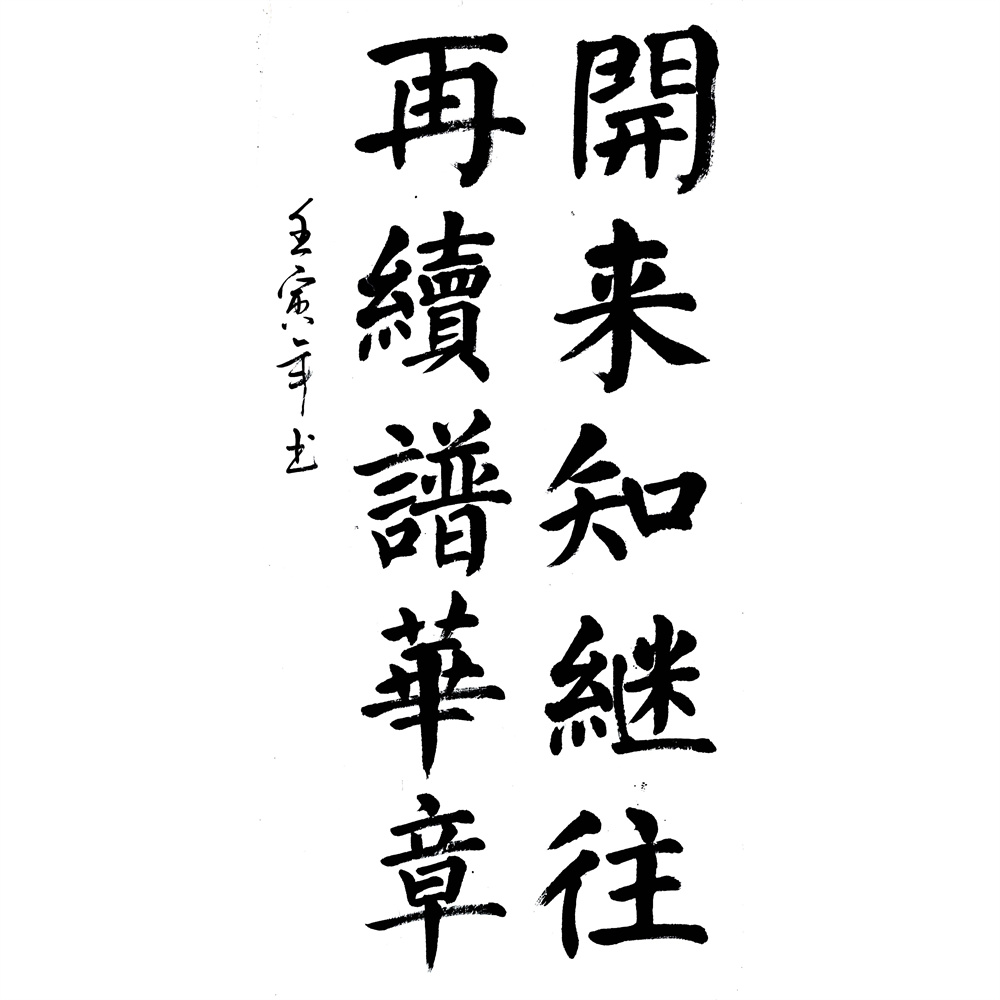 開来知継往
再續譜華章
壬寅年书